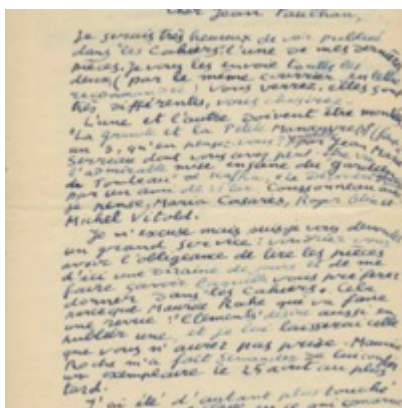 cher Jean Paulhan,
Je serais très heureux de voir publiée
dans "les Cahiers" l'une de mes dernières
pièces. Je vous les envoie toutes les
deux (par le même courrier, en lettre
recommandée) vous verrez, elles sont
très différentes, vous choisirez.
L'une et l'autre doivent être montées
"La grande et la Petite Manœuvre"
un 3, qu'en pensez-vous? par Jean Marie
Serreau dont vous avez peut-être vu
l'admirable mise en scène du Gardien
du Tombeau de Kafka,
par un ami de Vilar. Coussonneau
je pense, Maria Casarès, Roger Blin et
Michel Vitold.
Je m'excuse mais puis-je vous demander
un grand service: voudriez-vous
avoir l'obligeance de lire les pièces
d'ici une dizaine de jours et de me
faire savoir laquelle vous préférez
donner dans les Cahiers. Cela
parce que Maurice Roche qui va faire
une revue: "Eléments" désire aussi en
publier une, et je lui laisserai celle
que vous n'auriez pas prise. Maurice
Roche m'a fait demander de lui confier
un exemplaire le 25 avril au plus
tard.
J'ai été d'autant plus touché